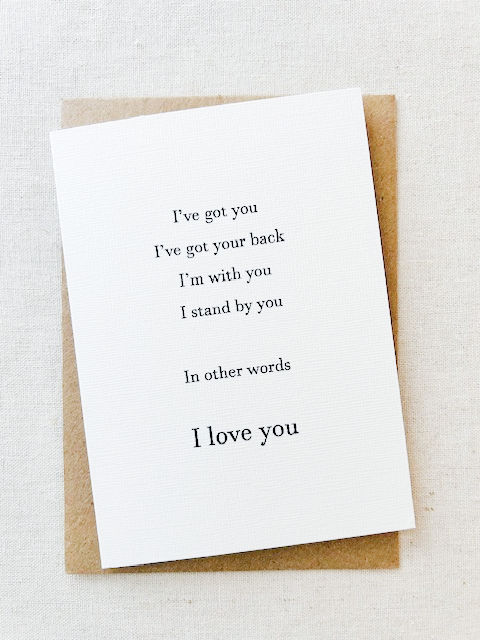 I've got you
I've got your back
I'm with you
I stand by you
In other words
I love you